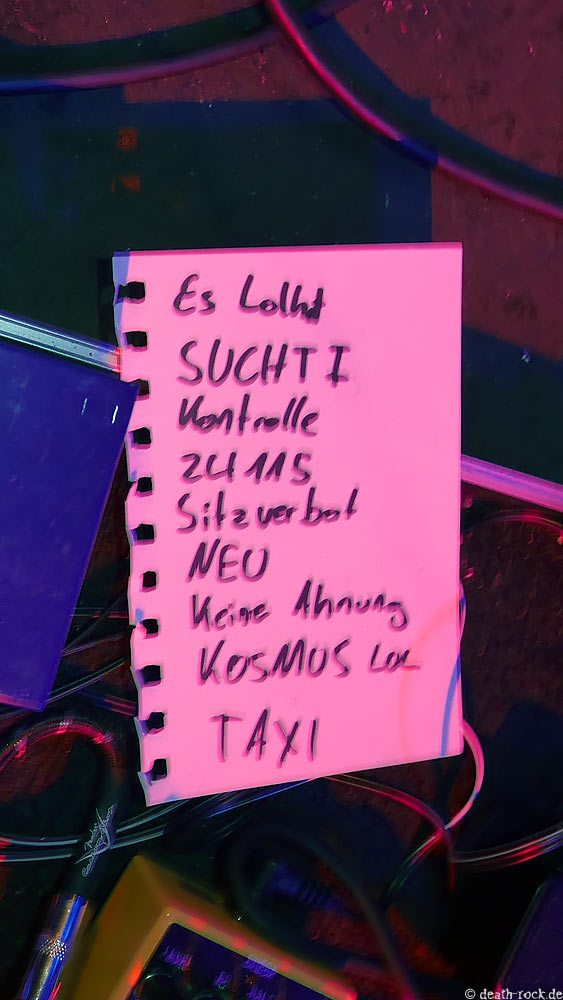 Es Lollit
SUCHTI
Kontrolle
24115
Sitzverbot
NEU
Keine Ahnung
KOSMOS LOL
TAXI
© death-rock.de